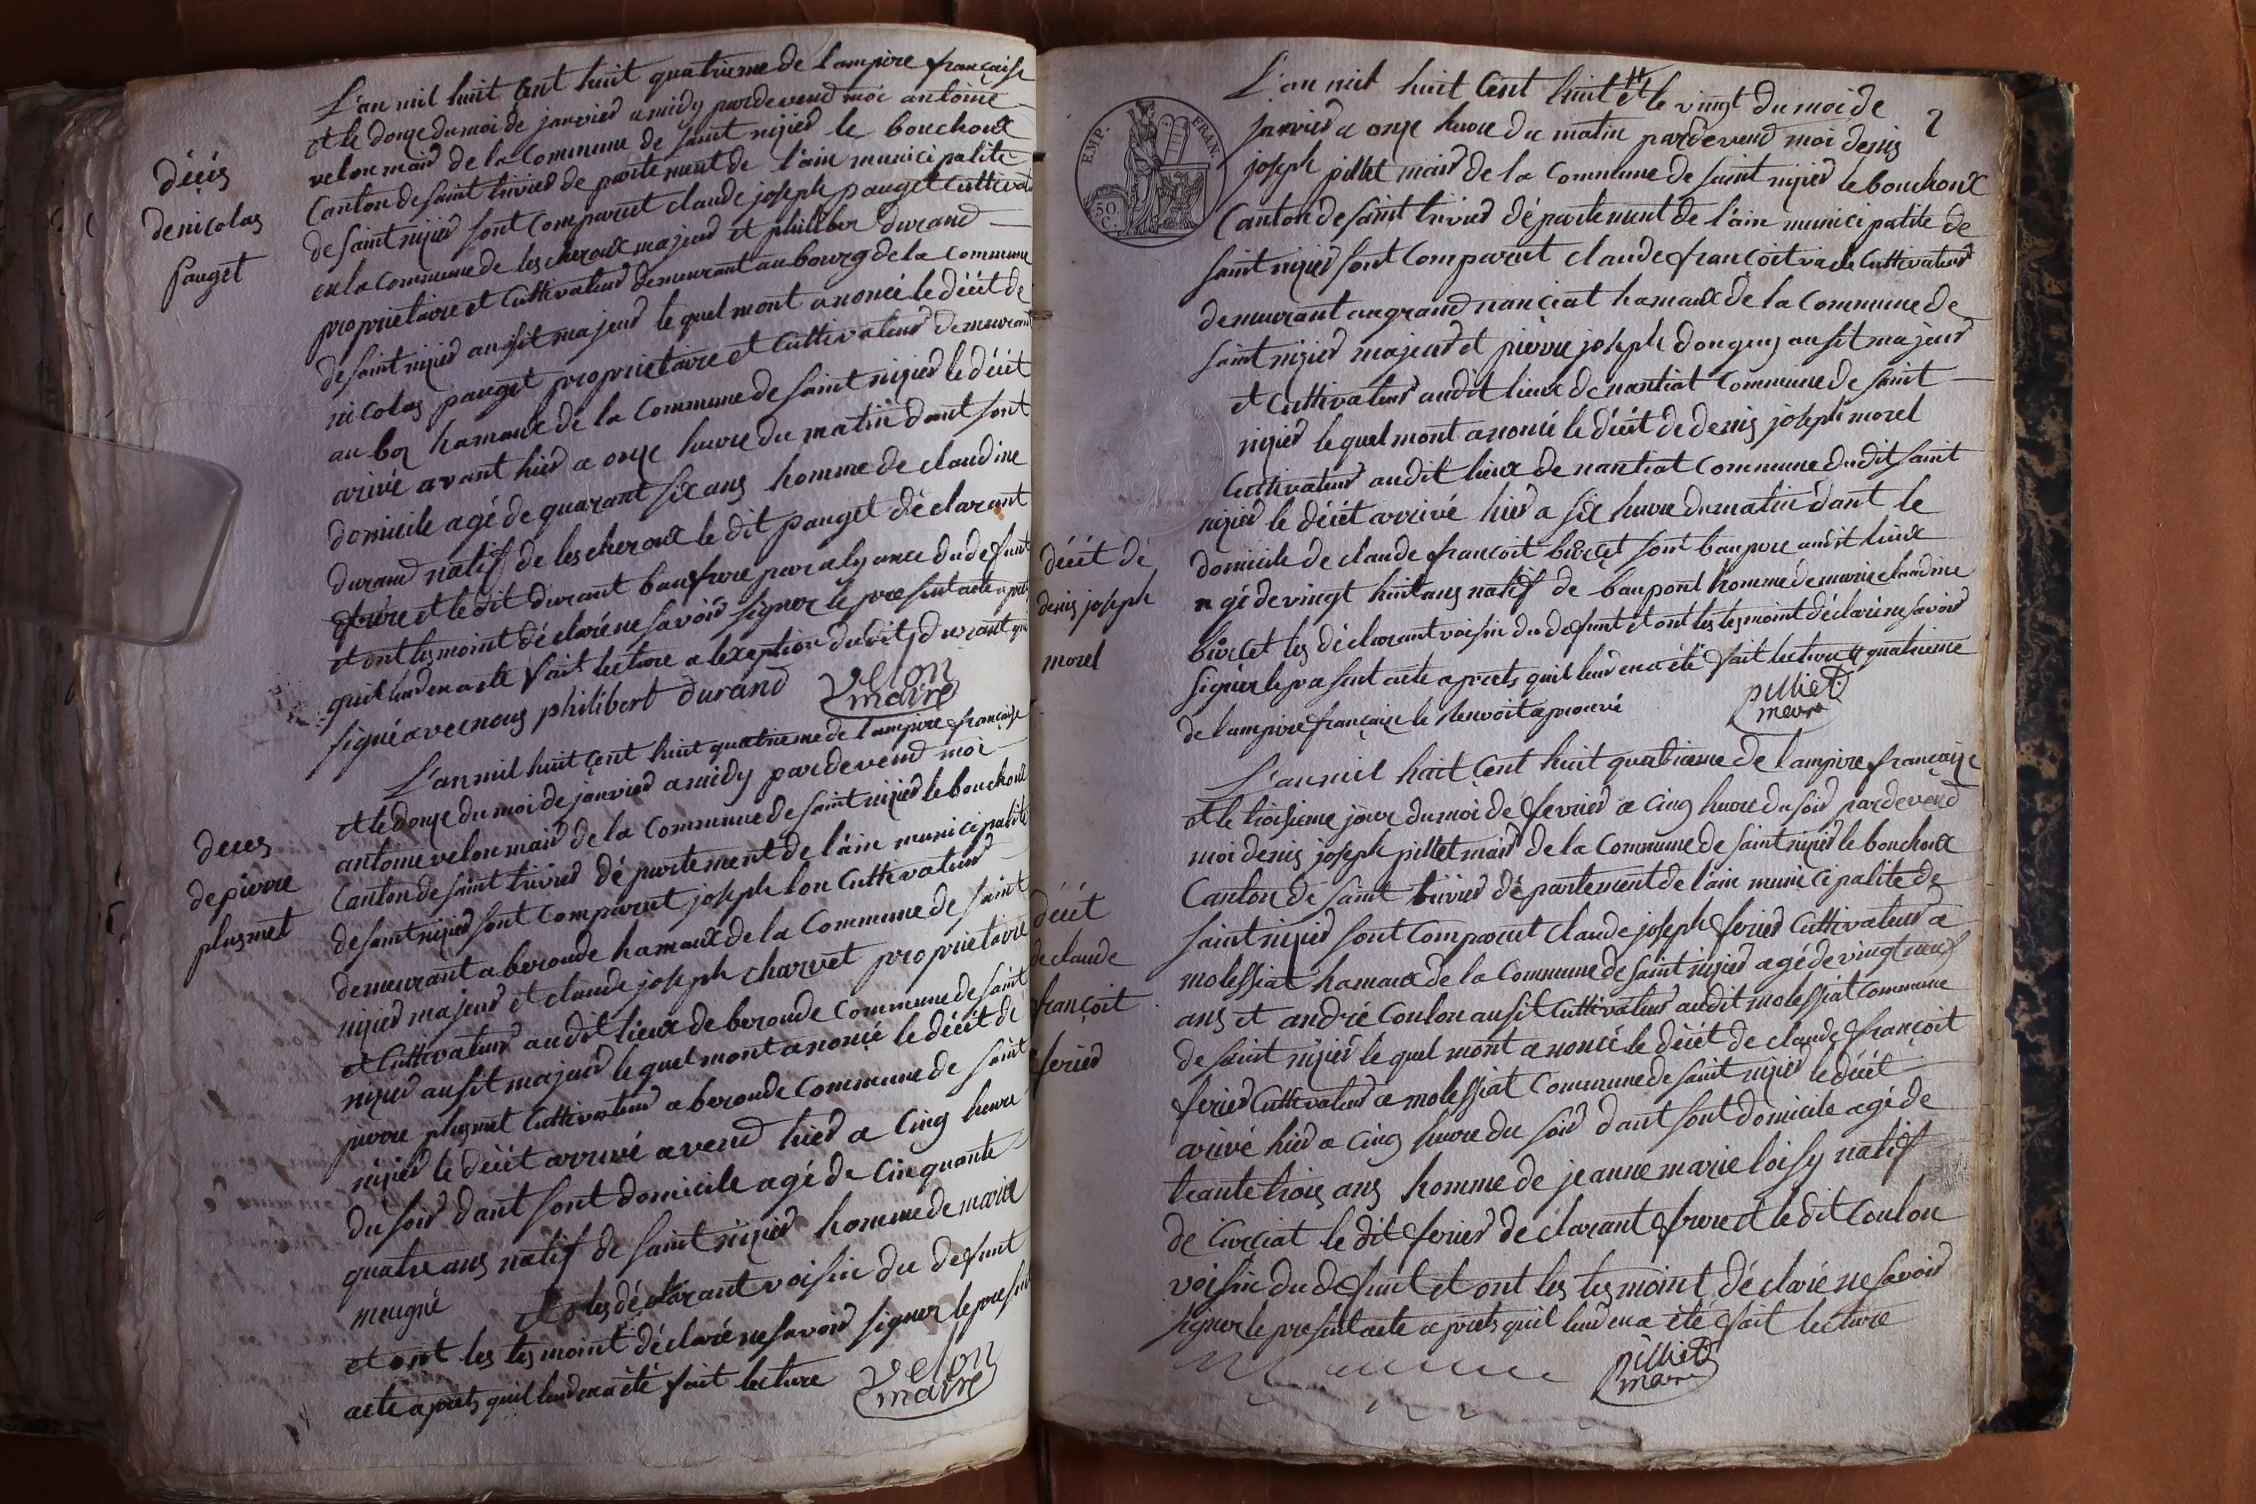 décés
de nicolas
pauget
L'an mil huit cent huit quatrieme de lampire française
et le douze du moi de janvier a midy pardevend moi antoine
velon mair de la Commune de saint nizier le bouchoux
Canton de saint trivier de partement de l'ain municipalite
de saint nizier sont Comparut claude joseph pauget Cultivat
en la Commune de lescheroux majeur et philiber durand
proprietaire et Cultivateur demeurant au bourg de la Commune
de saint nizier ausit majeur le quel mont anoncé le décét de
nicolas pauget proprietaire et Cultivateur demeurant
au boz hamaux de la Commune de saint nizier le décét
arivé avant hier a onze heure du matin dant sont
domicile agé de quarant six ans homme de claudine
durand natif de lescheroux le dit pauget déclarant
frere et le dit durant baufrere par alyance du defunt
et ont les moint déclaré ne savoir signer le present acte apret
quil leur en a eté fait lecture a lexeption du dit durant qui
signé avec nous philibert durand
velon
maire
deces
de pierre
plusmet
L'an mil huit cent huit quatrieme de lampire française
et le douze du moi de janvier a midy pardevend moi
antoine velon mair de la Commune de saint nizier le bouchoux
Canton de saint trivier département de l'ain municipalité
de saint nizier sont Comparut joseph lon Cultivateur
demeurant a beroude hamaux de la Commune de saint
nizier majeur et claude joseph charvet proprietaire
et Cultivateur audit lieux de beroude Commune de saint
nizier ausit majeur le quel mont anoncé le décét de
pierre plusmet Cultivateur a beroude Commune de saint
nizier le décét arrivé avend hier a Cinq heure
du soir dant sont domicile agé de Cinquante
quatre ans natif de saint nizier homme de marie
meugné et les déclarant voisin du defunt
et ont les tesmoint déclaré ne savoir signer le present
acte aprets quil leur en a été fait lecture
velon
maire
2
EMP. FRAN.
50
C.
L'an mil huit Cent huit et le vingt du moi de
janvier a onze heure du matin pardevend moi denis
joseph pillet mair de la Commune de saint nizier le bouchoux
Canton de saint trivier département de l'ain municipalite de
saint nizier sont Comparut claude françoit Cultivateur
demeurant au grand nanciat hamaux de la Commune de
saint nizier majeur et pierre joseph donguy ausit majeur
et Cultivateur audit lieux de nantiat Commune de saint
nizier le quel mont anoncé le décét de denis joseph morel
Cultivateur audit lieux de nantiat Commune dudit saint
nizier le décét arrivé hier a six heure du matin dant le
domicile de claude françoit burcet sont baupere audit lieux
agé de vingt huit ans natif de baupont homme de marie claudine
burcet les déclarant voisin du defunt et ont les tesmoint déclaré ne savoir
signer le present acte aprets quil leur en a été fait lecture quatrieme
de lampire française le renvoit aprouvé
pilliet
maire
décét de
denis joseph
morel
L'an mil huit cent huit quatrieme de lampire française
et le troisieme jour du moi de fevrier a cinq heure du soir pardevend
moi denis joseph pillet mair de la Commune de saint nizier le bouchoux
Canton de saint trivier département de l'ain municipalite de
saint nizier sont Comparut claude joseph ferier Cultivateur a
molessiat hamaux de la Commune de saint nizier agé de vingt neuf
ans et andré Coulon ausit Cultivateur audit molessiat Commune
de saint nizier le quel mont anoncé le décét de claude françoit
ferier Cultivateur a molessiat Commune de saint nizier le décét
arivé hier a cinq heure du soir dant sont domicile agé de
trante trois ans homme de jeanne marie loisy natif
de Curciat le dit ferier declarant frere et le dit Coulon
voisin du defunt et ont les tesmoint déclaré ne savoir
signer le present acte aprets quil leur en a été fait lecture
pilliet
maire
décét
de claude
françoit
ferier